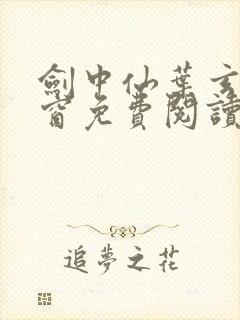 劍中仙葉玄
窗免費閱讀
追夢之花